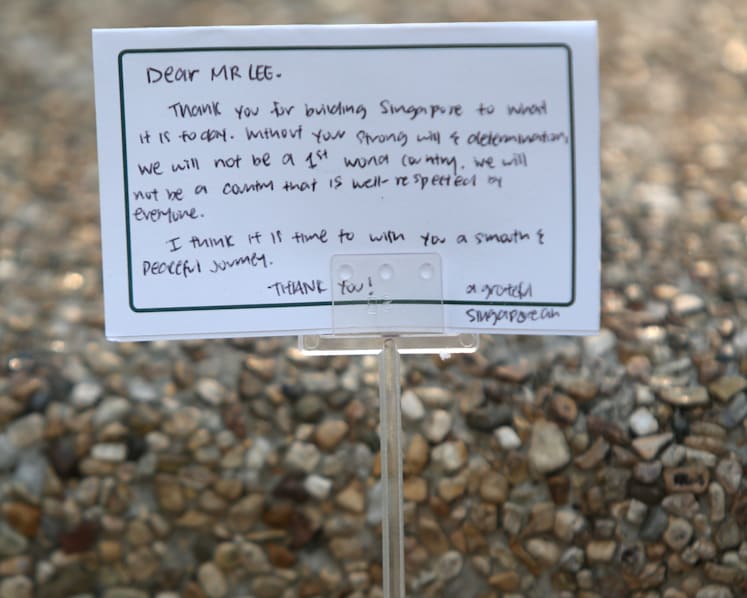 Dear MR LEE.
Thank you for building Singapore to what
it is today. Without your strong will & determination,
we will not be a 1st world country. We will
not be a country that is well-respected by
everyone.
I think it is time to wish you a smooth &
peaceful journey.
-THANK You!
a grateful
Singaporean